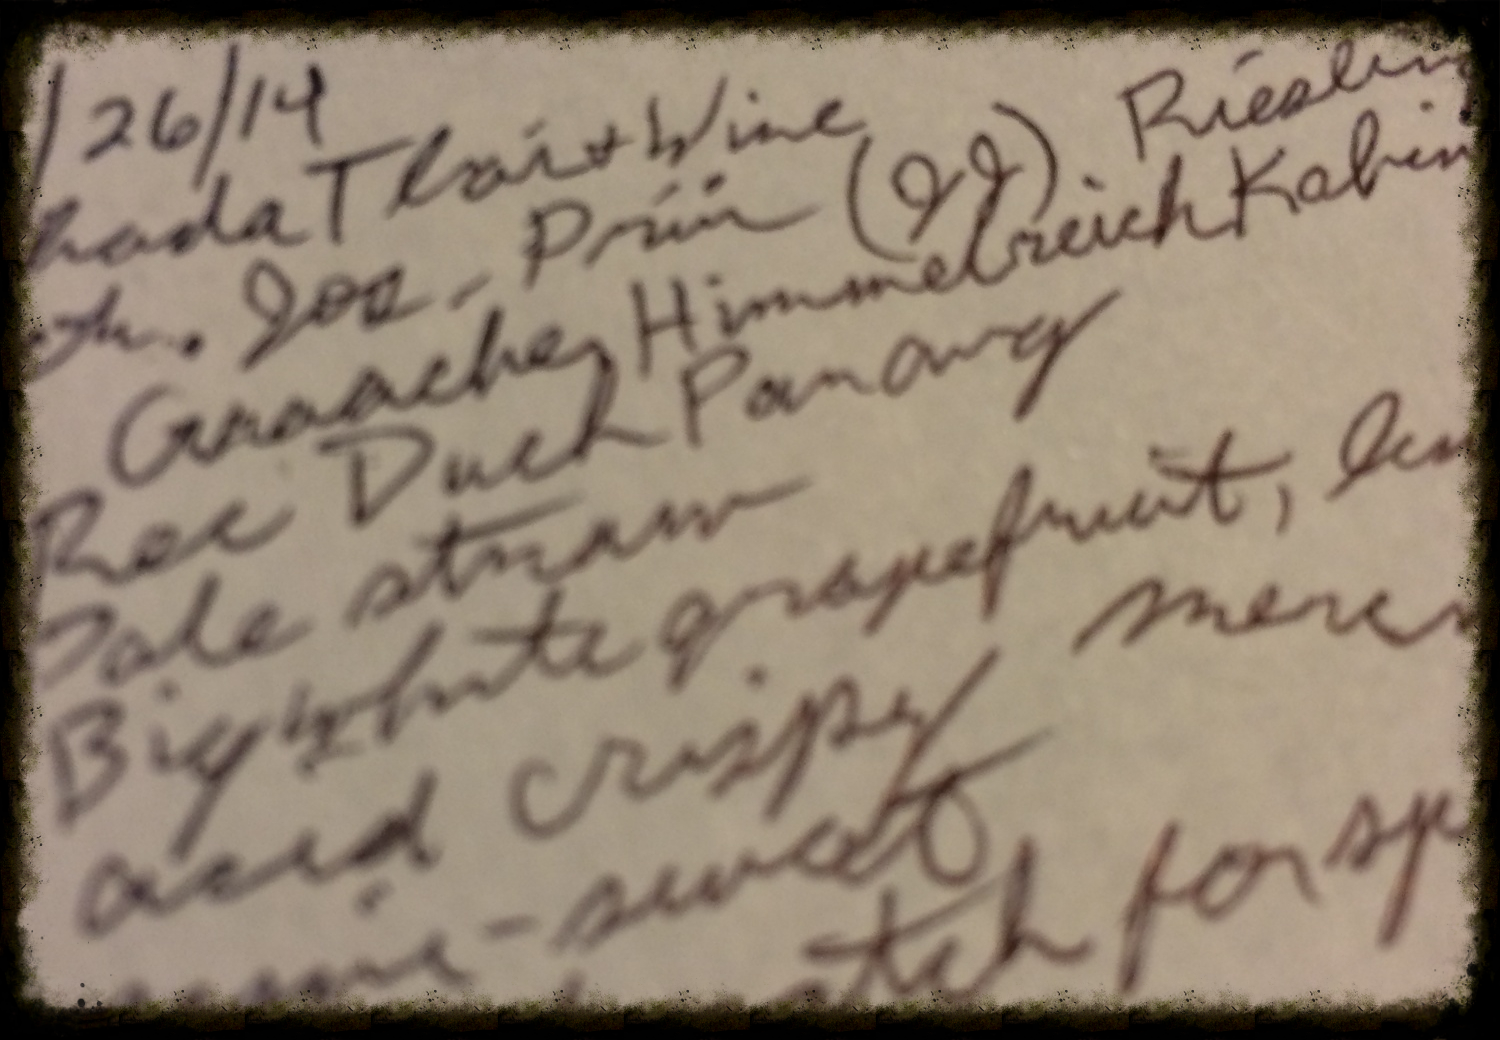 /26/14
hada Thai + Wine
Joz. Prüm (JJ) Rieslin
Graacher Himmelreich Kabin
Rec Duck Panang
Pale straw
Big white grapefruit, lem
acid crispy
semi-sweet
match for sp